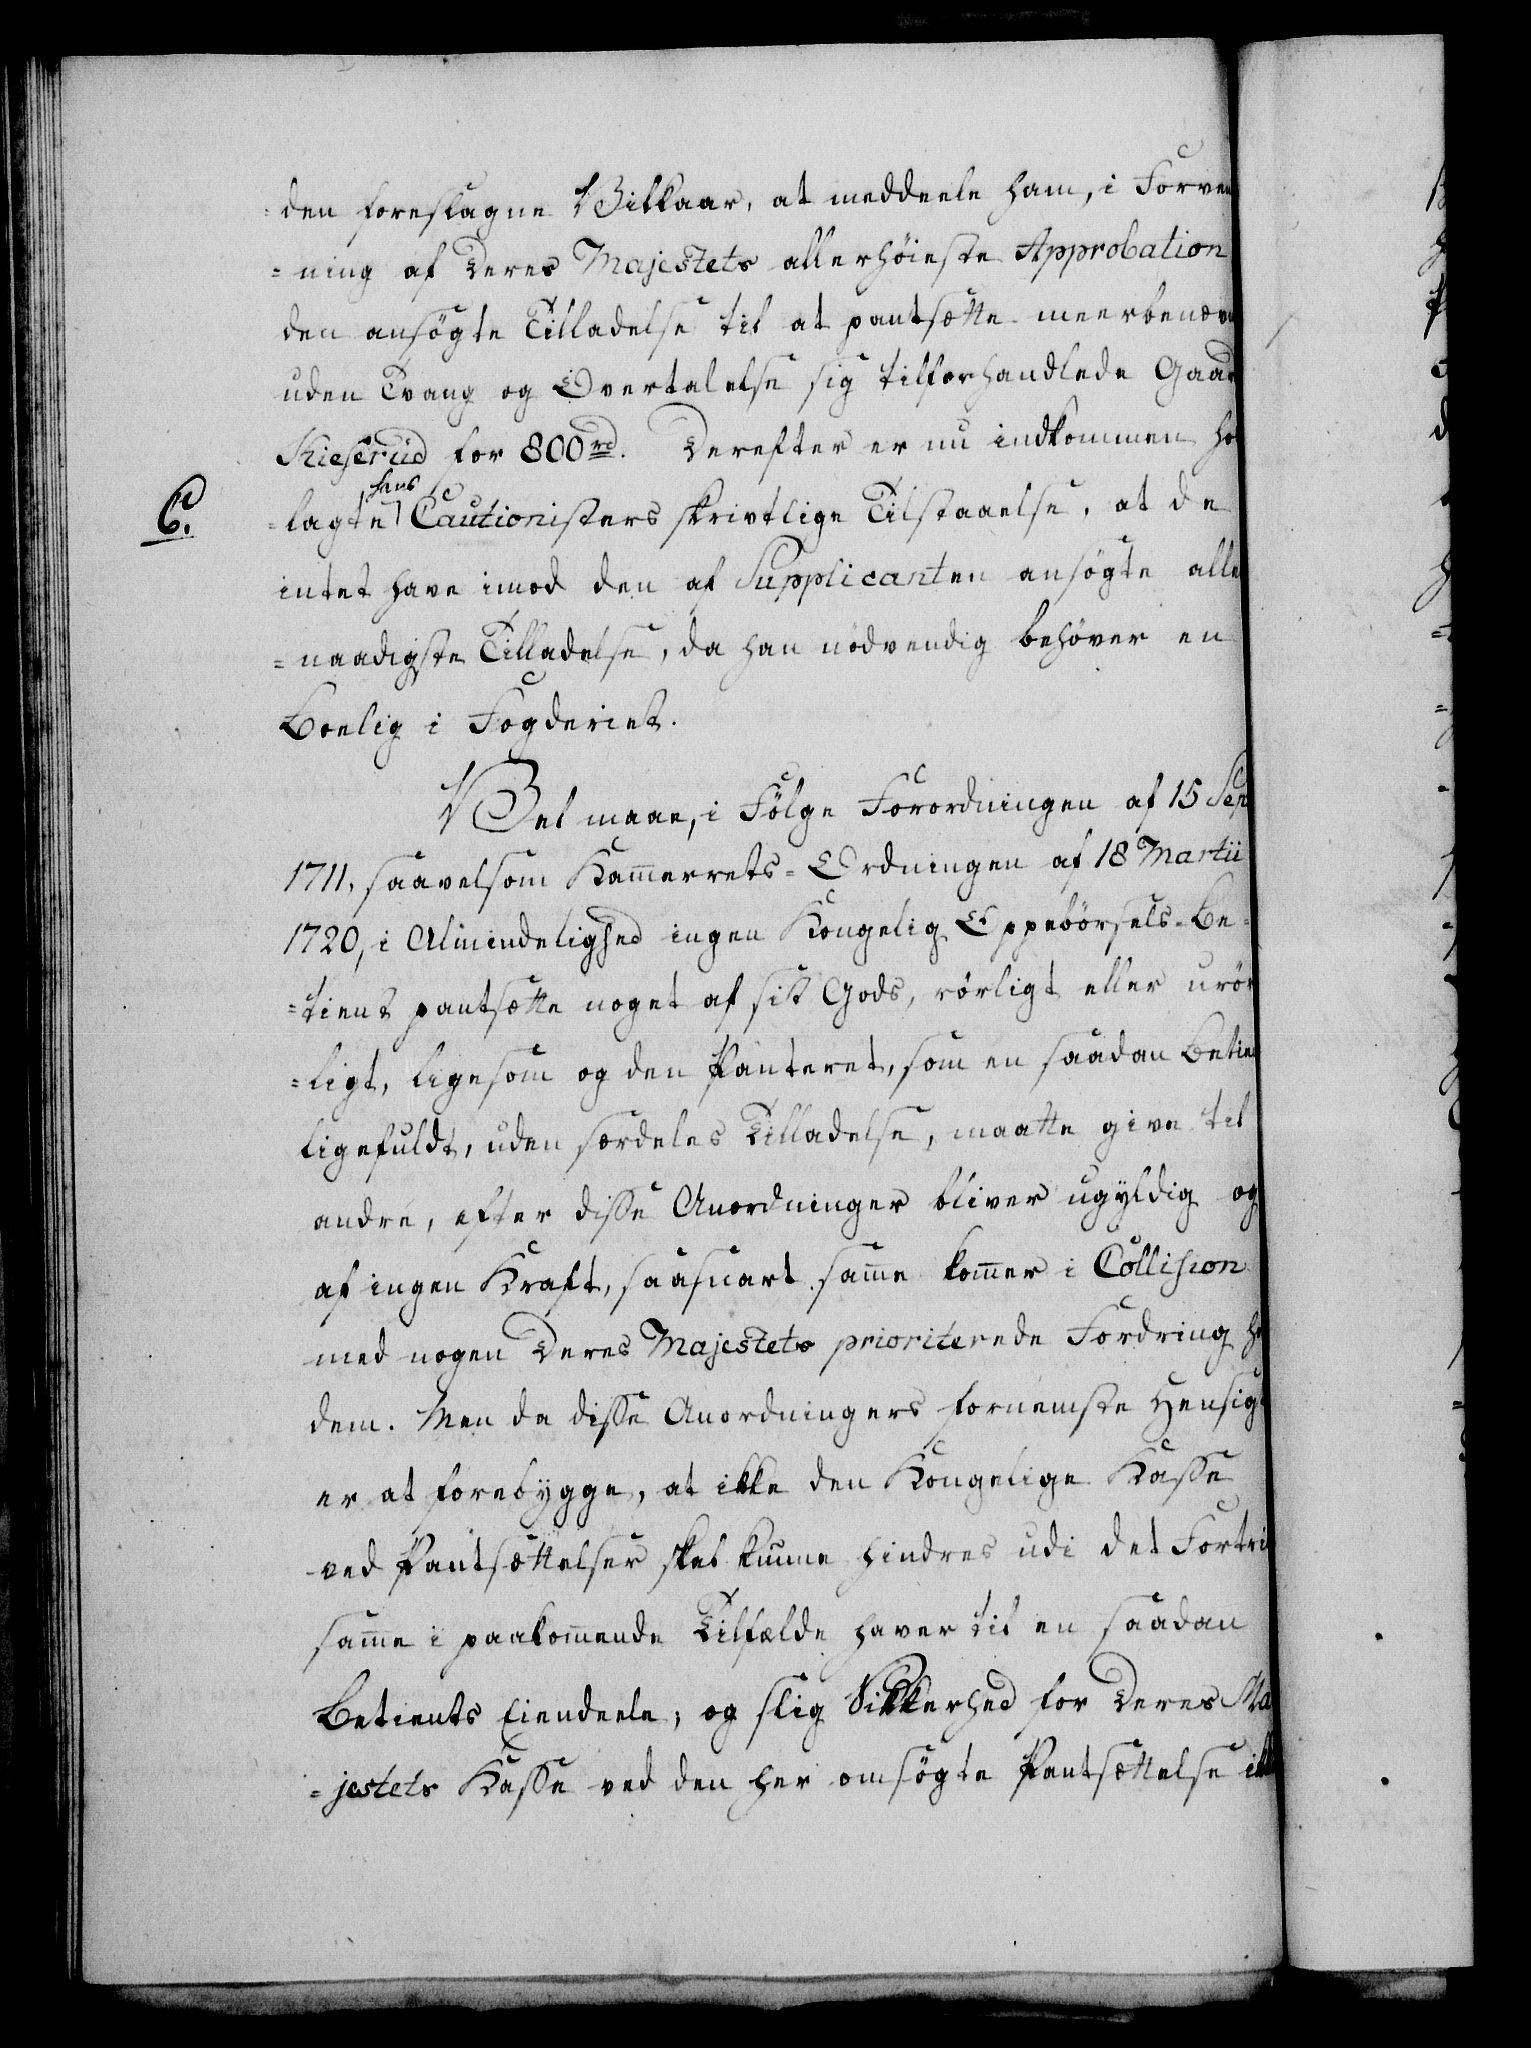 den foreslagne Vilkaar, at meddeele ham, i Forven
=ning af Deres Majestets allerhöieste Approbation
den ansögte Tilladelse til at pantsætte meerbenævn
uden Tvang og Overtalelse sig tilforhandlede Gaar
Kieserüd for 800 rd. Derefter er nu indkommen ho
6. =lagte hans Cautionisters skrivtlige Tilstaaelse, at de
intet have imod den af Supplicanten ansögte alle
=naadigste Tilladelse, da han nödvendig behöver en
Boelig i Fogderiet.
Vel maae, i Fölge Forordningen af 15 Sep
1711, saavelsom Kammerrets-Ordningen af 18 Martii
1720, i Almindelighed ingen Kongelig Oppebörsels-Be-
=tient pantsætte noget af sit Gods, rörligt eller urör
=ligt, ligesom og den Panteret, som en saadan Betien
ligefuldt, uden særdeles Tilladelse, maatte give til
andre, efter disse Anordninger bliver ugyldig og
af ingen Kraft, saasnart samme kommer i Collision
med nogen Deres Majestets prioriterede Fordring ho
dem. Men da disse Anordningers fornemste Hensigt
er at forebygge, at ikke den Kongelige Kasse
ved Pantsættelser skal kunne hindres udi det Fortri
samme i paakommende Tilfælde haver til en saadan
Betients Eiendeele; og slig Sikkerhed for Deres Ma
=jestets Kasse ved den her omsögte Pantsættelse ikk